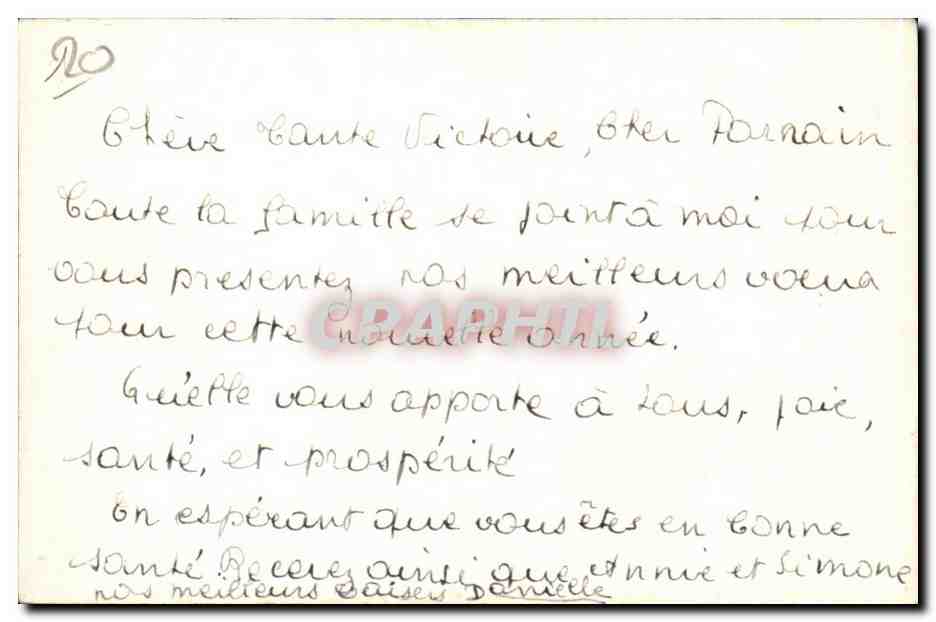 20
Chère Tante Victoire, Cher Parrain
Toute la famille se joint à moi pour
vous presentez nos meilleurs voeux
pour cette nouvelle année.
CPAPHIL
Qu'elle vous apporte à tous, joie,
santé, et prospérité
En espérant que vous êtes en bonne
santé. Recevez ainsi que Annie et Simone
nos meilleurs baisers Danielle